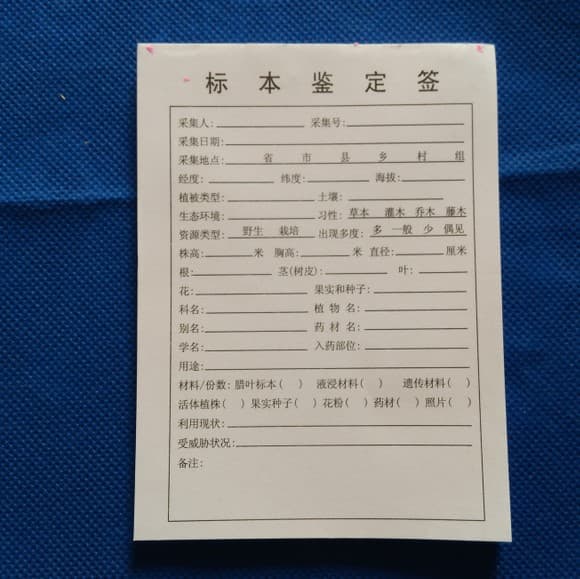 标 本 鉴 定 签
采集人: 采集号:
采集日期:
采集地点: 省 市 县 乡 村 组
经度: 纬度: 海拔:
植被类型: 土壤:
生态环境: 习性: 草本 灌木 乔木 藤木
资源类型: 野生 栽培 出现多度: 多 一般 少 偶见
株高: 米 胸高: 米 直径: 厘米
根: 茎(树皮): 叶:
花: 果实和种子:
科名: 植 物 名:
别名: 药 材 名:
学名: 入药部位:
用途:
材料/份数: 腊叶标本( ) 液浸材料( ) 遗传材料( )
活体植株( ) 果实种子( ) 花粉( ) 药材( ) 照片( )
利用现状:
受威胁状况:
备注: